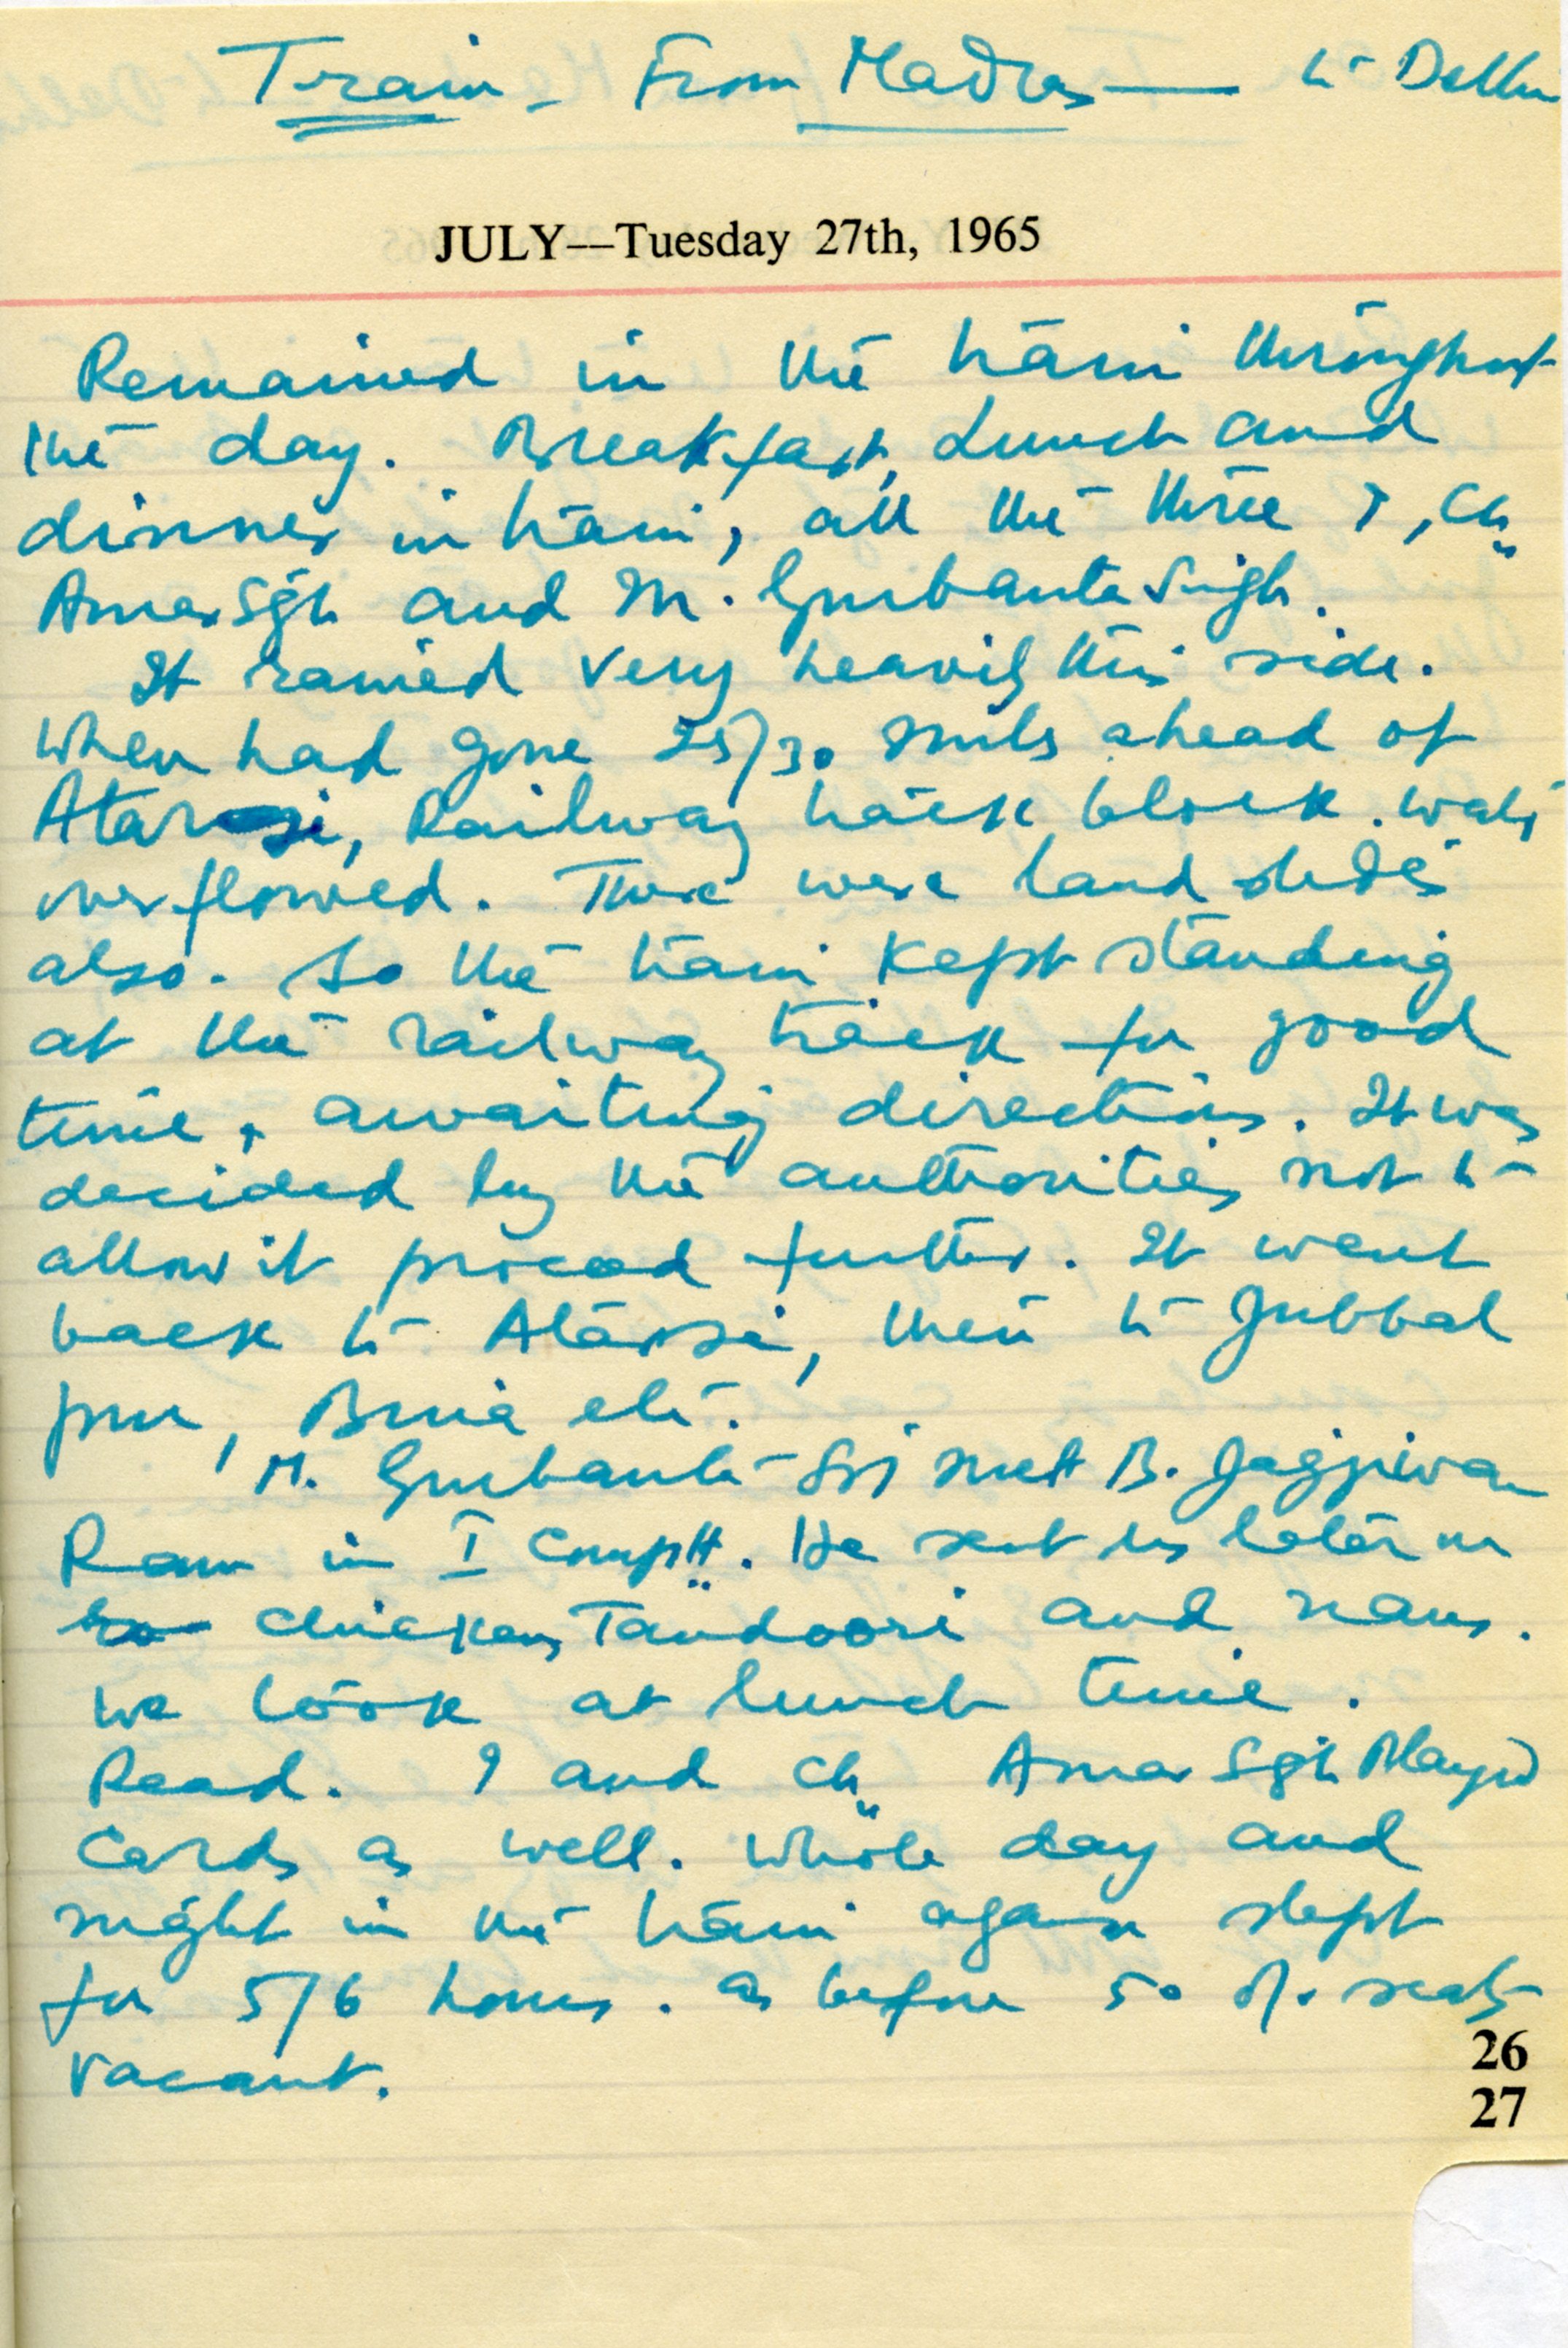 Train - From Madras — to Delhi
JULY—Tuesday 27th, 1965
Remained in the train throughout
the day. Breakfast, Lunch and
dinner in train, all the three I, Ch.
Amar Sgh and M. Gurbanta Singh.
It rained very heavily this side.
When had gone 25/30 miles ahead of
Atarsi, Railway track block. was
overflowed. There were land slides
also. So the train kept standing
at the railway track for good
time, awaiting directions. It was
decided by the authorities not to
allow it proceed further. It went
back to Atarsi, then to Jubbal
pur, Bina etc.
M. Gurbanta Sgh mett B. Jagjiwan
Ram in I Comptt. He sent us later on
chicken Tandoori and nans.
We took at lunch time.
Read. I and Ch. Amar Sgh Played
Cards as well. Whole day and
night in the train again slept
for 5/6 hours. As before 50 % seats
vacant.
26
27